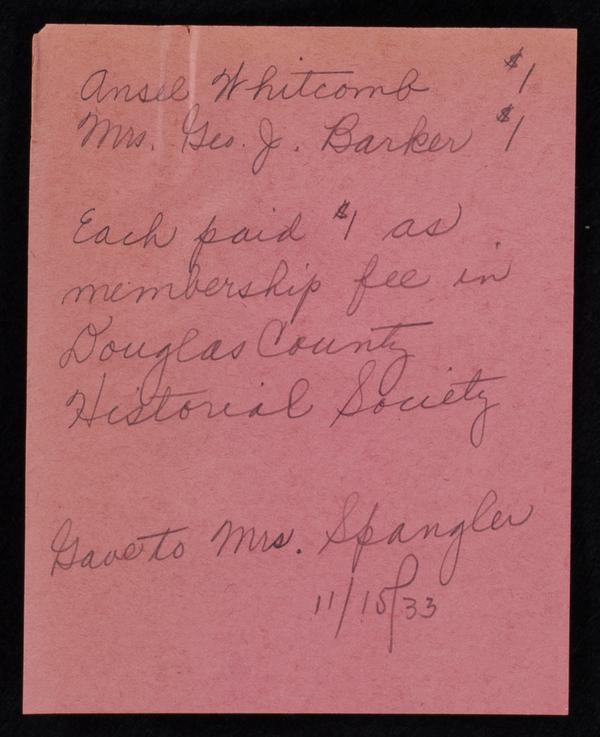 Ansel Whitcomb $1
Mrs. Geo. J. Barker $1
Each paid $1 as
membership fee in
Douglas County
Historial Society
Gave to Mrs. Spangler
11/15/33